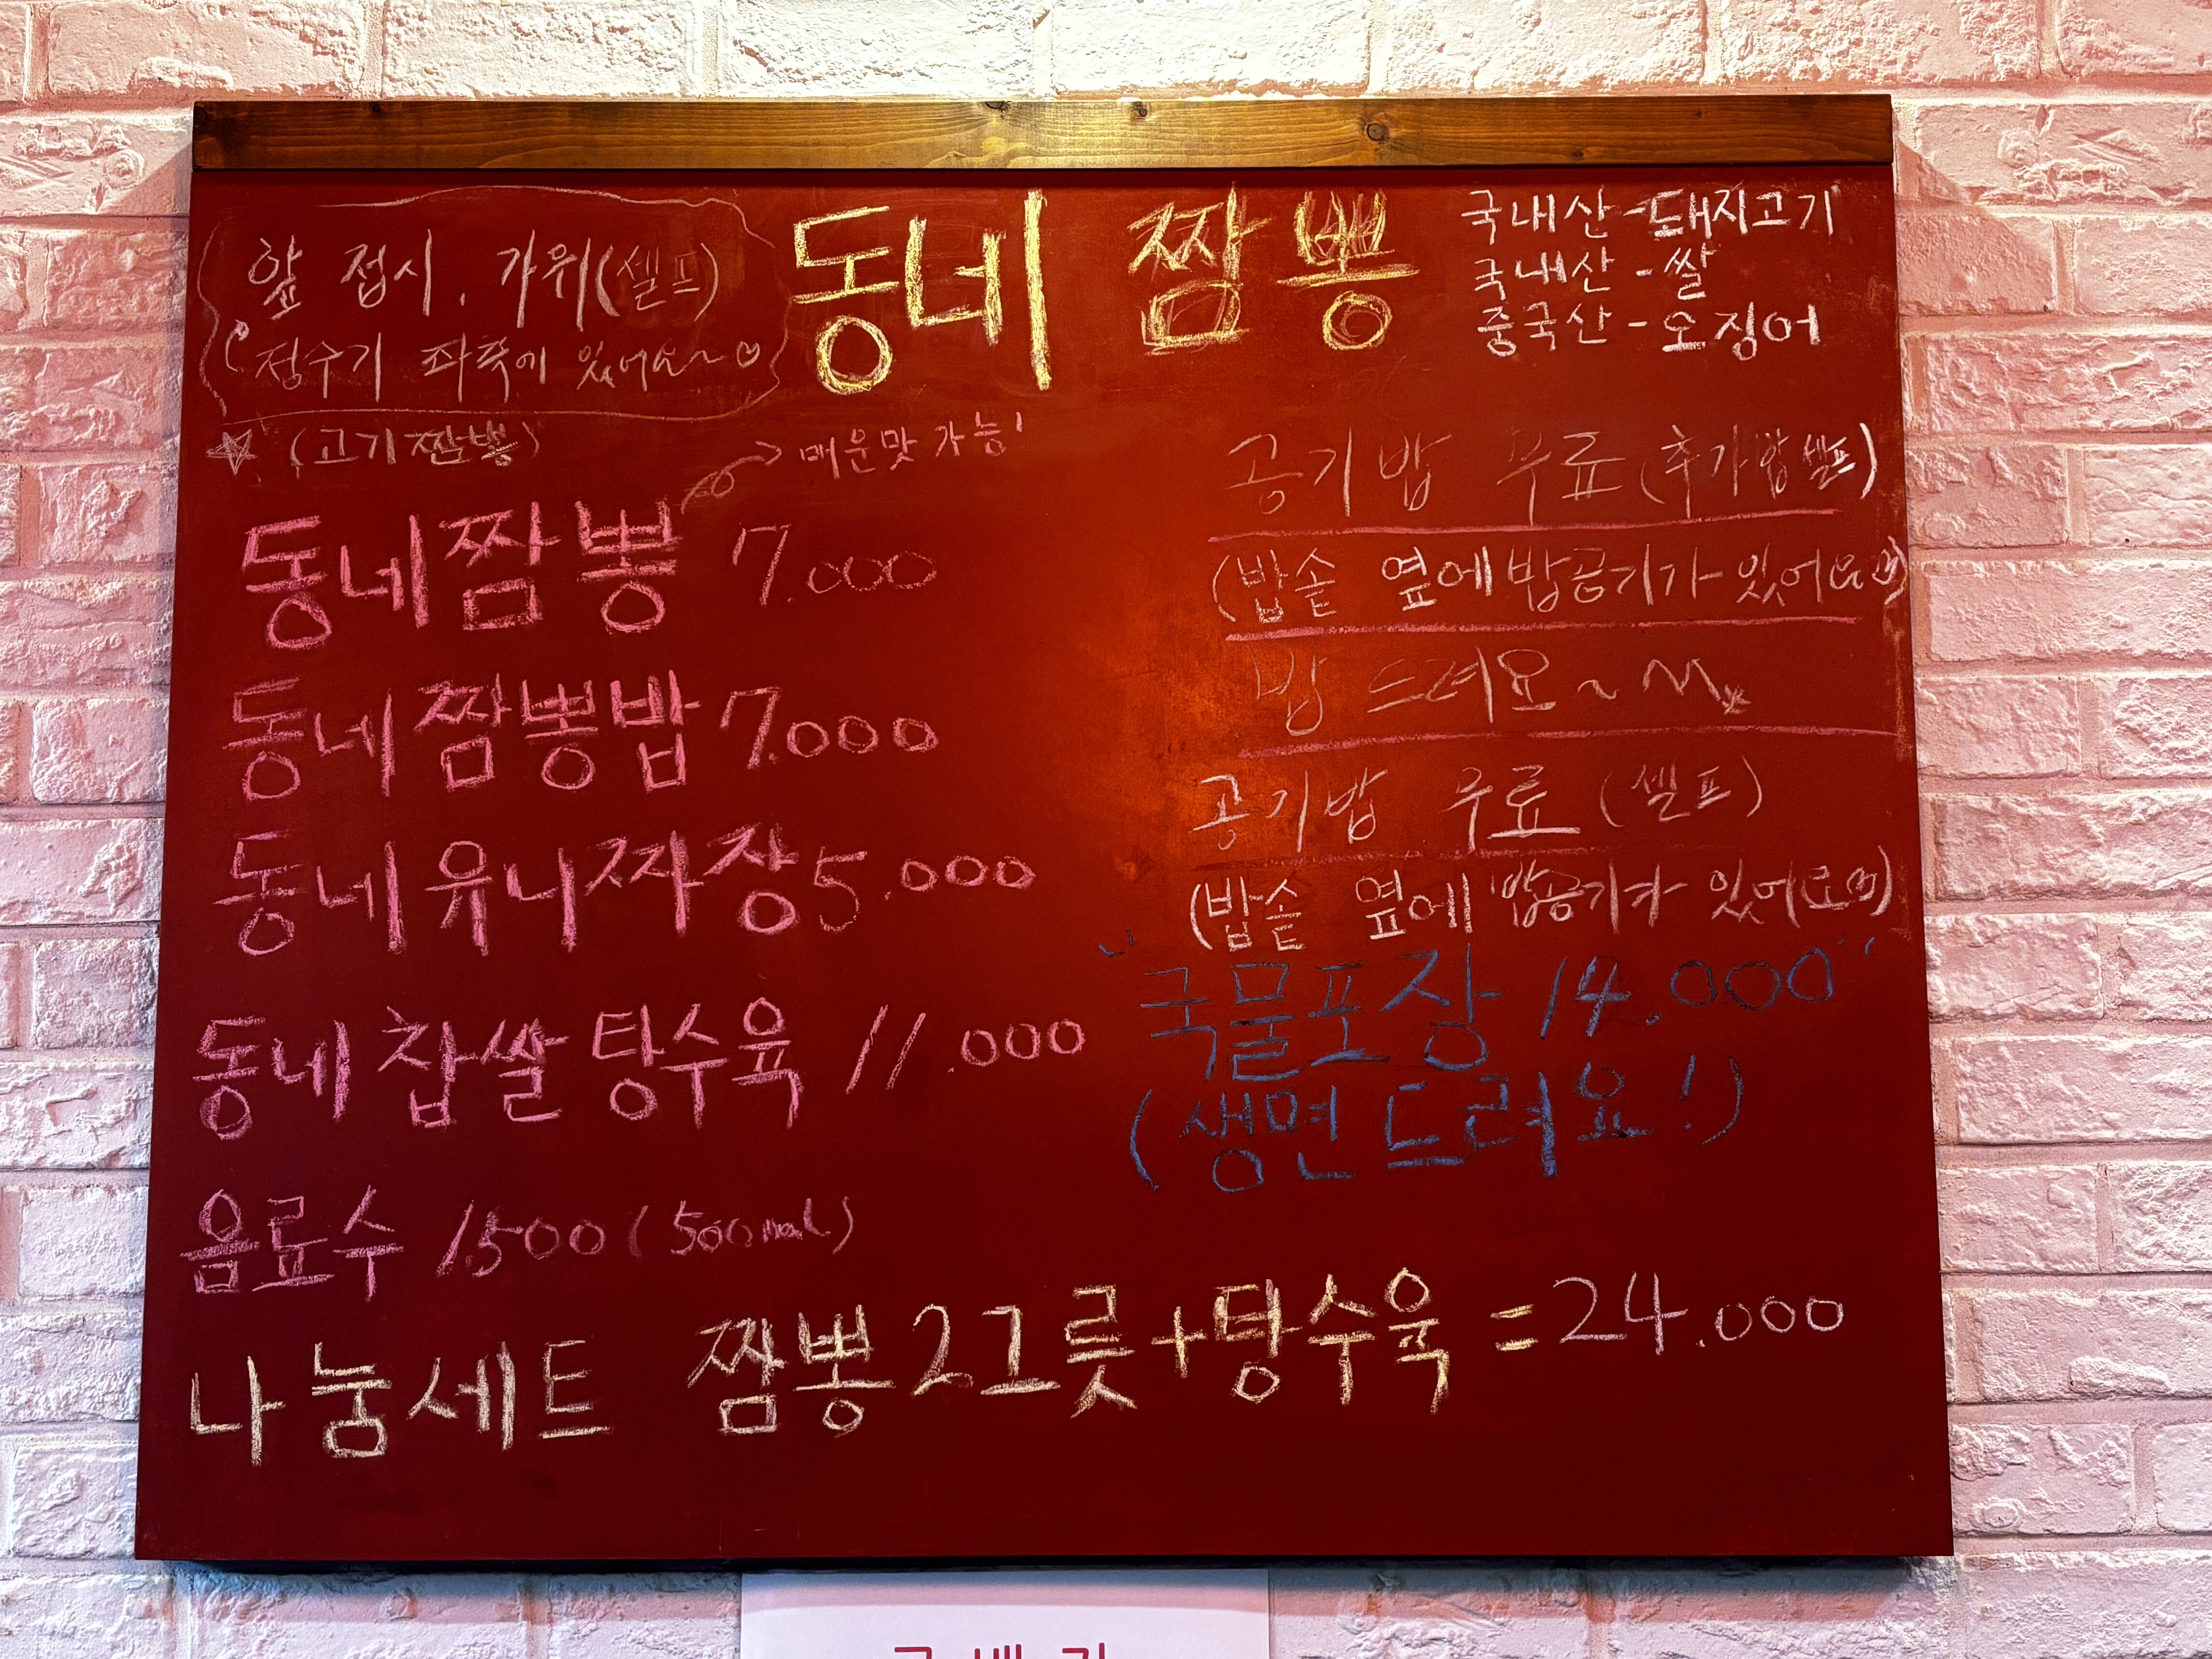 동네 짬뽕
앞 접시. 가위(셀프)
정수기 좌측에 있어요~♡
국내산 - 돼지고기
국내산 - 쌀
중국산 - 오징어
☆ (고기짬뽕)
→ 매운맛 가능!
동네짬뽕 7.000
동네짬뽕밥 7.000
동네유니짜장 5.000
동네 찹쌀 탕수육 11.000
음료수 1.500 (500ml)
공기밥 무료 (추가밥 셀프)
(밥솥 옆에 밥공기가 있어요)
밥 드려요~
공기밥 무료 (셀프)
(밥솥 옆에 밥공기가 있어요)
"국물포장 14.000"
(생면드려요!)
나눔세트 짬뽕2그릇+탕수육 = 24.000